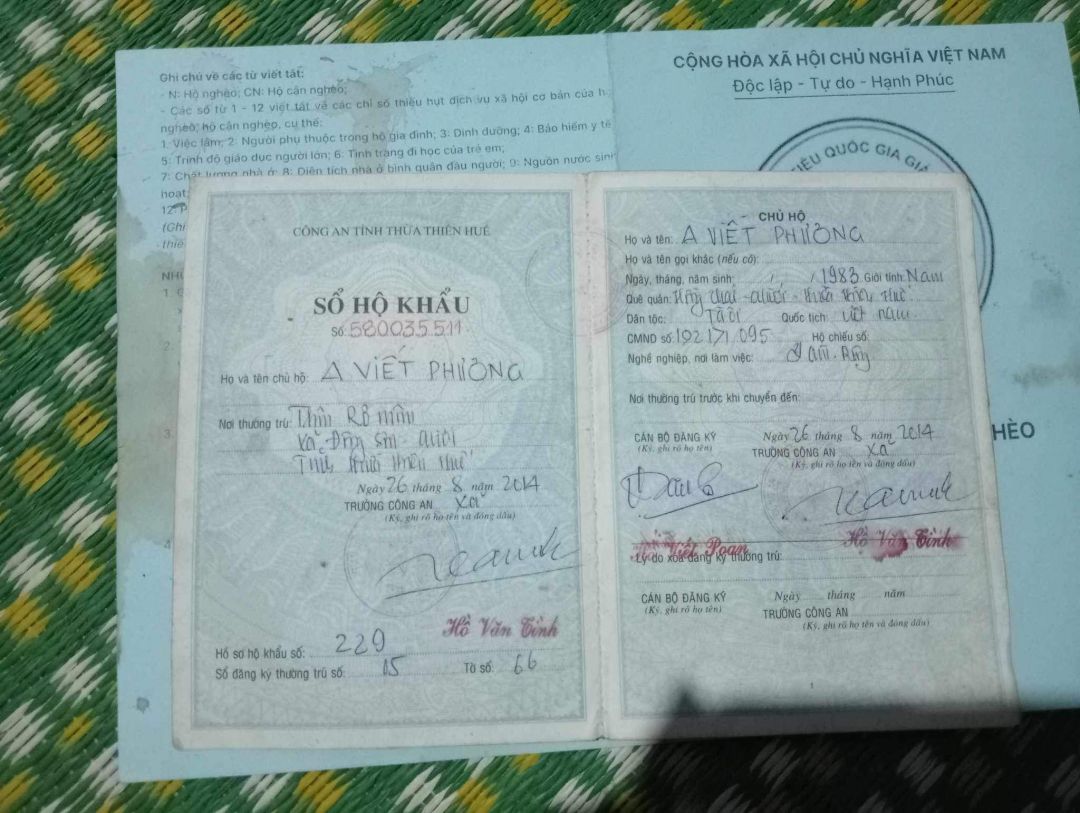 Ghi chú về các từ viết tắt:
- N: Hộ nghèo; CN: Hộ cận nghèo;
- Các số từ 1 - 12 viết tắt về các chỉ số thiếu hụt dịch vụ xã hội cơ bản của
nghèo, hộ cận nghèo, cụ thể:
1: Việc làm; 2: Người phụ thuộc trong hộ gia đình; 3: Dinh dưỡng; 4: Bảo hiểm y tế
5: Trình độ giáo dục người lớn; 6: Tình trạng đi học của trẻ em;
7: Chất lượng nhà ở; 8: Diện tích nhà ở bình quân đầu người; 9: Nguồn nước sinh
hoạt;
12:
(Ghi
thiế
NH
1.
2.
3.
4.
CỘNG HÒA XÃ HỘI CHỦ NGHĨA VIỆT NAM
Độc lập - Tự do - Hạnh Phúc
TIÊU QUỐC GIA GIẢ
HÈO
CÔNG AN TỈNH THỪA THIÊN HUẾ
SỔ HỘ KHẨU
Số: 580035511
Họ và tên chủ hộ: A VIẾT PHƯƠNG
Nơi thường trú: Thôn Rô môm
Xã Đông Sơn - A Lưới
Tỉnh Thừa Thiên Huế
Ngày 26 tháng 8 năm 2014
TRƯỞNG CÔNG AN xã
(Ký, ghi rõ họ tên và đóng dấu)
Hồ Văn Tình
Hồ sơ hộ khẩu số: 229
Sổ đăng ký thường trú số: 05 Tờ số: 66
CHỦ HỘ
Họ và tên: A VIẾT PHƯƠNG
Họ và tên gọi khác (nếu có):
Ngày, tháng, năm sinh: / / 1983 Giới tính: Nam
Quê quán: A Lưới - Thừa Thiên Huế
Dân tộc: Tà ôi Quốc tịch: Việt nam
CMND số: 192171095 Hộ chiếu số:
Nghề nghiệp, nơi làm việc:
Nơi thường trú trước khi chuyển đến:
CÁN BỘ ĐĂNG KÝ
(Ký, ghi rõ họ tên)
Ngày 26 tháng 8 năm 2014
TRƯỞNG CÔNG AN xã
(Ký, ghi rõ họ tên và đóng dấu)
Viết Poan
Hồ Văn Tình
Lý do xóa đăng ký thường trú:
CÁN BỘ ĐĂNG KÝ
(Ký, ghi rõ họ tên)
Ngày tháng năm
TRƯỞNG CÔNG AN
(Ký, ghi rõ họ tên và đóng dấu)
1